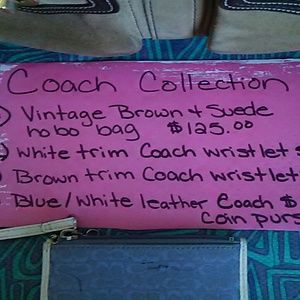 Coach Collection
Vintage Brown & Suede
hobo bag $125.00
White trim Coach wristlet $
Brown trim Coach wristlet
Blue/white leather Coach $
Coin purs